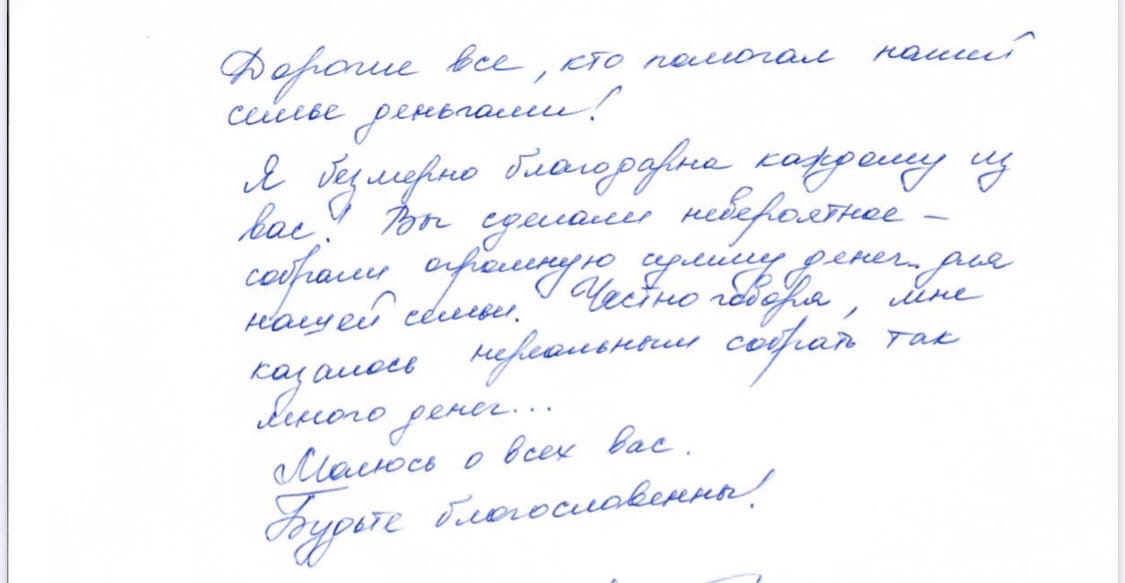 Дорогие все, кто помогал нашей
семье деньгами!
Я безмерно благодарна каждому из
вас! Вы сделали невероятное –
собрали огромную сумму денег для
нашей семьи. Честно говоря, мне
казалось нереальным собрать так
много денег...
Молюсь о всех вас.
Будьте благословенны!